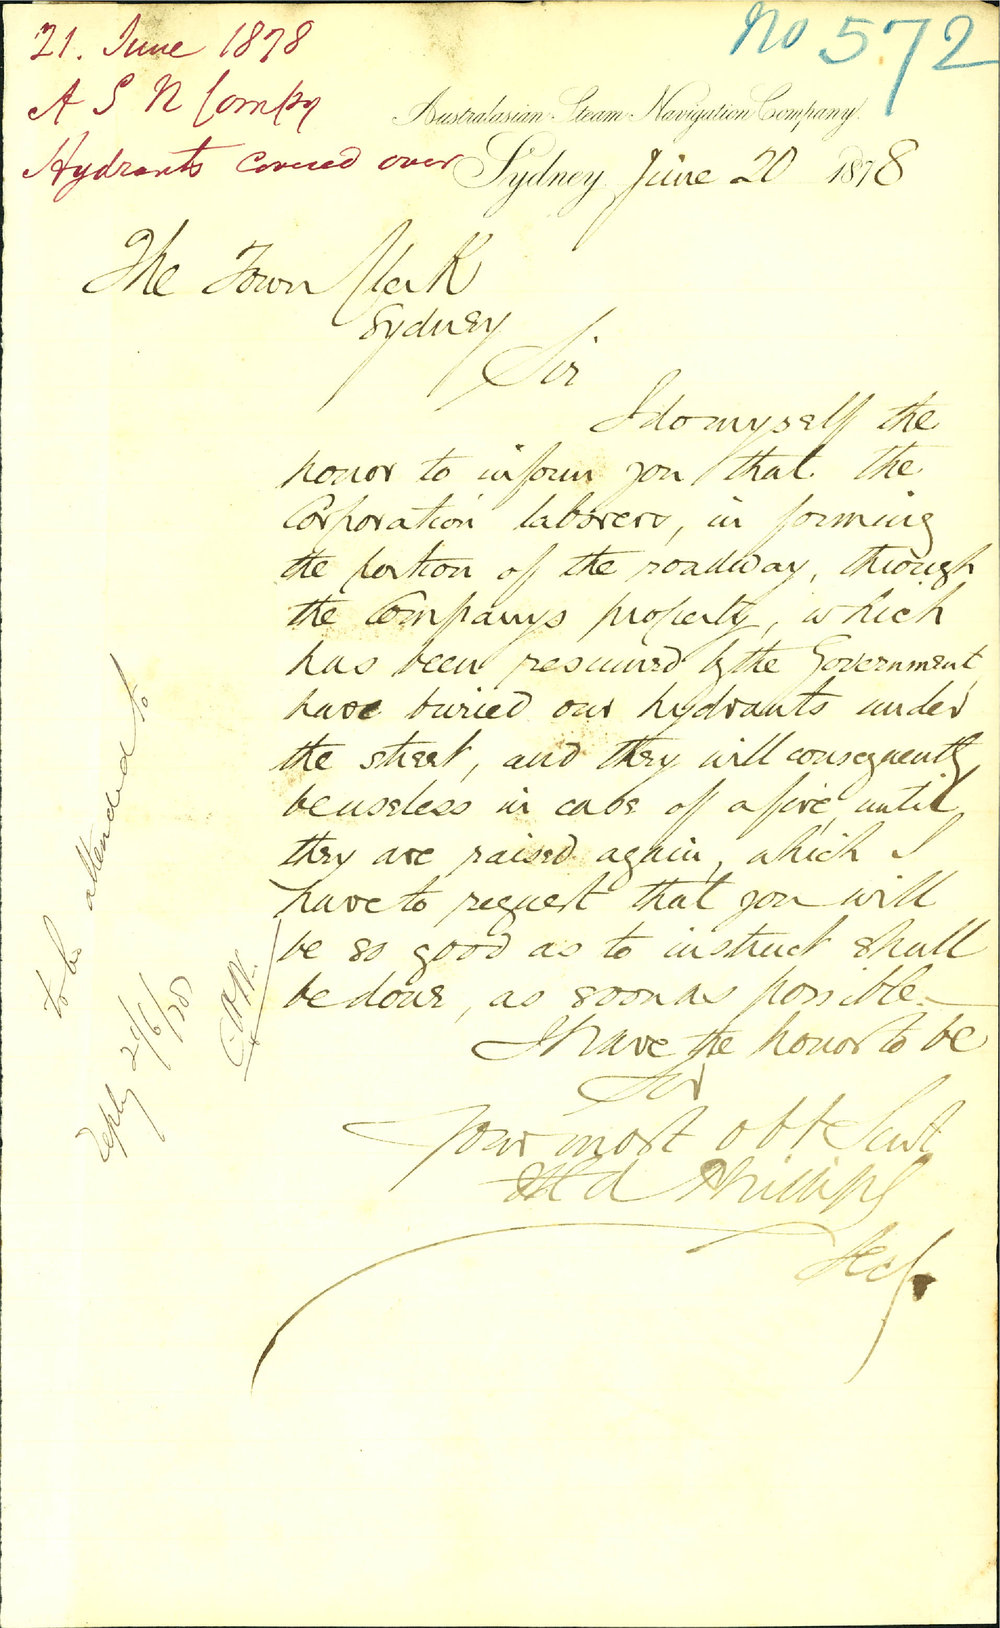 21. June 1878
A S N Compy
Hydrants covered over
No 572
Australasian Steam Navigation Company.
Sydney June 20 1878
The Town Clerk
Sydney
Sir
I do myself the
honor to inform you that the
Corporation laborers, in forming
the portion of the roadway, through
the Companys property, which
has been resumed by the Government,
have buried our hydrants under
the street, and they will consequently
be useless in case of a fire, until
they are raised again, which I
have to request that you will
be so good as to instruct shall
be done, as soon as possible.
I have the honor to be
Sir
Your most obt Servt
Phillips
Secy
to be attended to
Reply 24/6/78